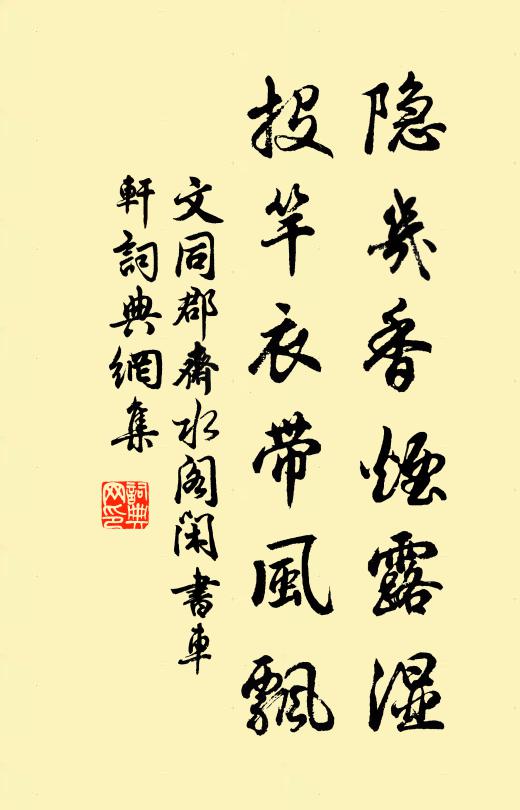 隐几香煙露湿
投竿衣带風飘
文同郡齋水阁闲書車
軒詞典網集
詞典网印